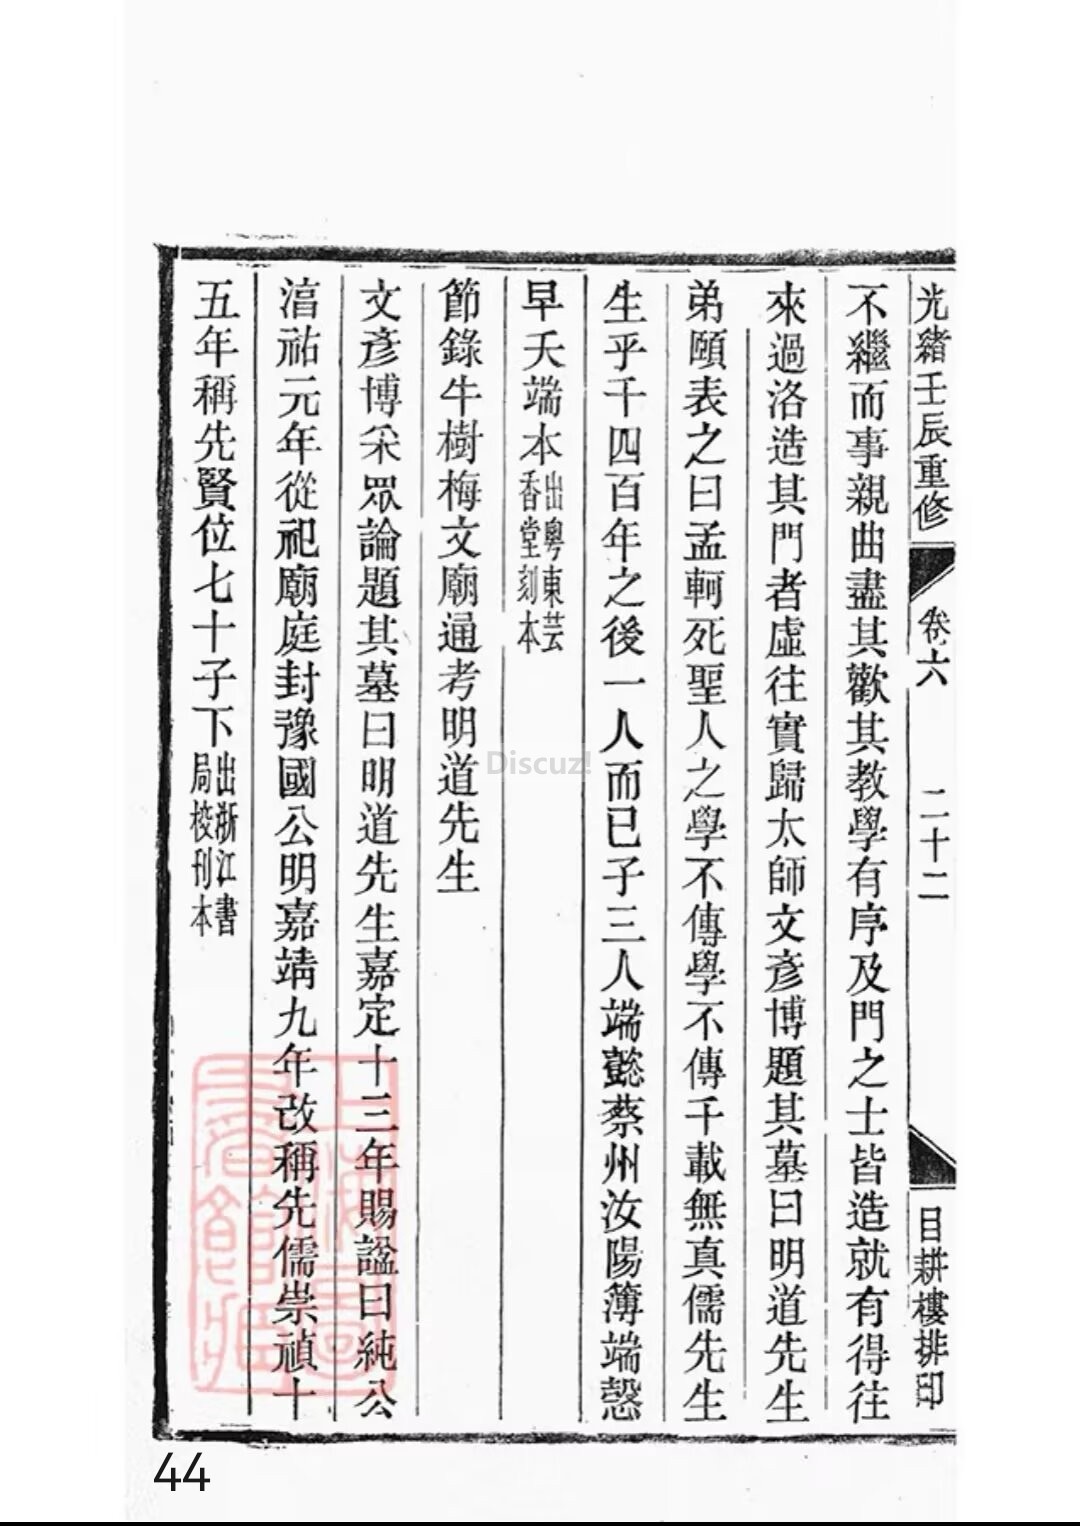 光緒壬辰重修 卷六 二十二 目耕樓排印
不繼而事親曲盡其歡其教學有序及門之士皆造就有得往
來過洛造其門者虛往實歸太師文彥博題其墓曰明道先生
弟頤表之曰孟軻死聖人之學不傳學不傳千載無真儒先生
生乎千四百年之後一人而已子三人端懿蔡州汝陽簿端愨
早夭端本出粵東芸香堂刻本
節錄牛樹梅文廟通考明道先生
文彥博采眾論題其墓曰明道先生嘉定十三年賜諡曰純公
湻祐元年從祀廟庭封豫國公明嘉靖九年改稱先儒崇禎十
五年稱先賢位七十子下出浙江書局校刊本
上海圖書館藏
Discuz!
44